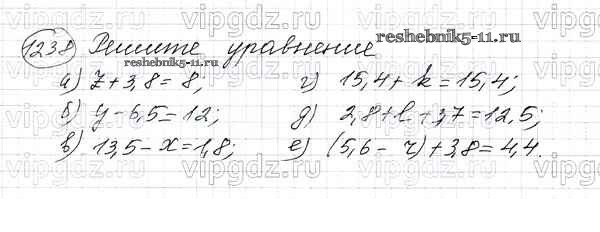 1238 Решите уравнение
reshebnik5-11.ru
reshebnik5-11.ru
а) z + 3,8 = 8; г) 15,4 + k = 15,4;
б) y - 6,5 = 12; д) 2,8 + l + 3,7 = 12,5;
в) 13,5 - x = 1,8; е) (5,6 - r) + 3,8 = 4,4.
vipgdz.ru vipgdz.ru vipgdz.ru vipgdz.ru
vipgdz.ru vipgdz.ru vipgdz.ru vipgdz.ru
vipgdz.ru vipgdz.ru vipgdz.ru vipgdz.ru
vipgdz.ru vipgdz.ru vipgdz.ru vipgdz.ru